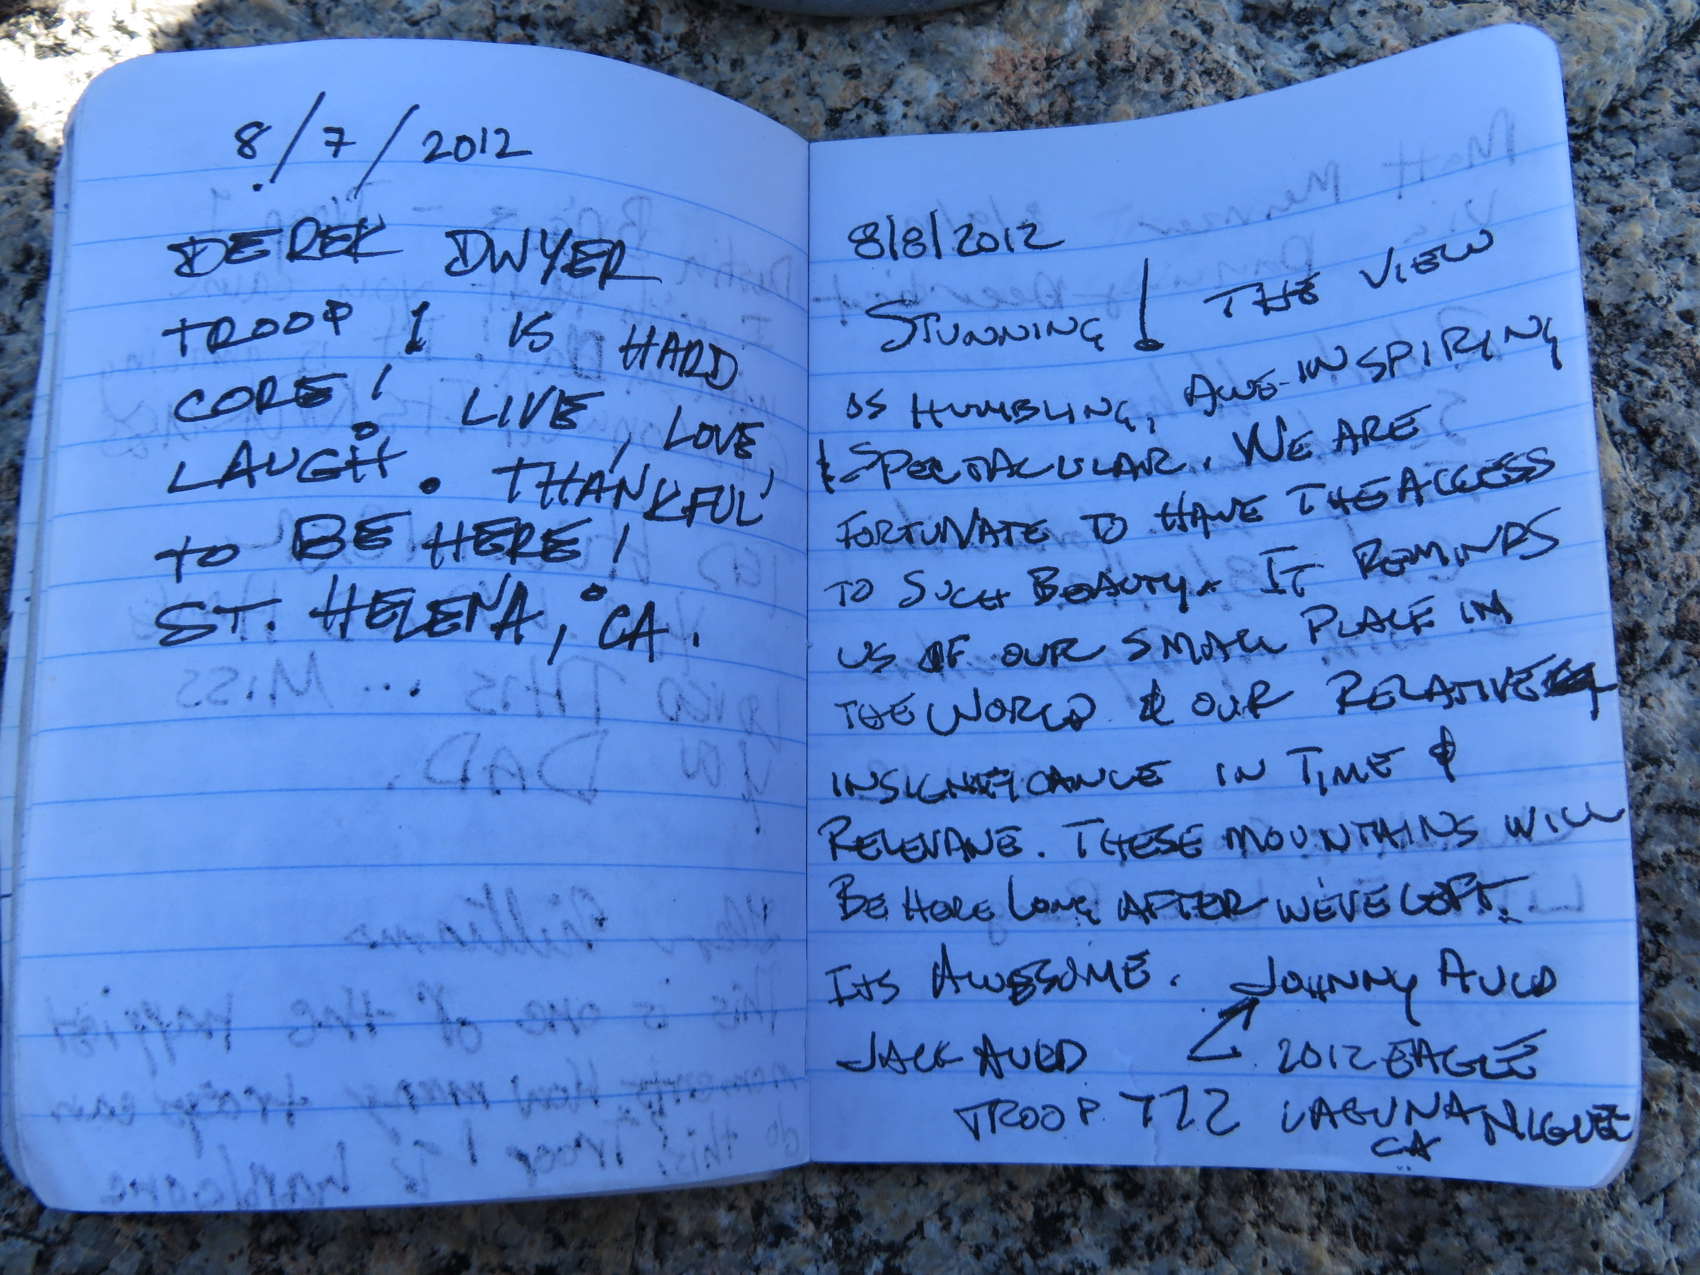 8/7/2012
DEREK DWYER
TROOP 1 IS HARD
CORE! LIVE, LOVE,
LAUGH. THANKFUL
TO BE HERE!
ST. HELENA, CA.
8/8/2012
STUNNING! THE VIEW
IS HUMBLING, AWE-INSPIRING
& SPECTACULAR. WE ARE
FORTUNATE TO HAVE THE ACCESS
TO SUCH BEAUTY. IT REMINDS
US OF OUR SMALL PLACE IN
THE WORLD & OUR RELATIVE
INSIGNIFICANCE IN TIME &
RELEVANE. THESE MOUNTAINS WILL
BE HERE LONG AFTER WE'VE LEFT.
ITS AWESOME. JOHNNY AULD
JACK AULD 2012 EAGLE
TROOP 722 LAGUNA NIGUEL
CA